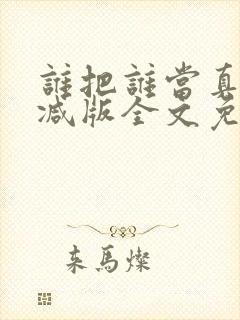 誰把誰當真
减版全文免
来馬燦